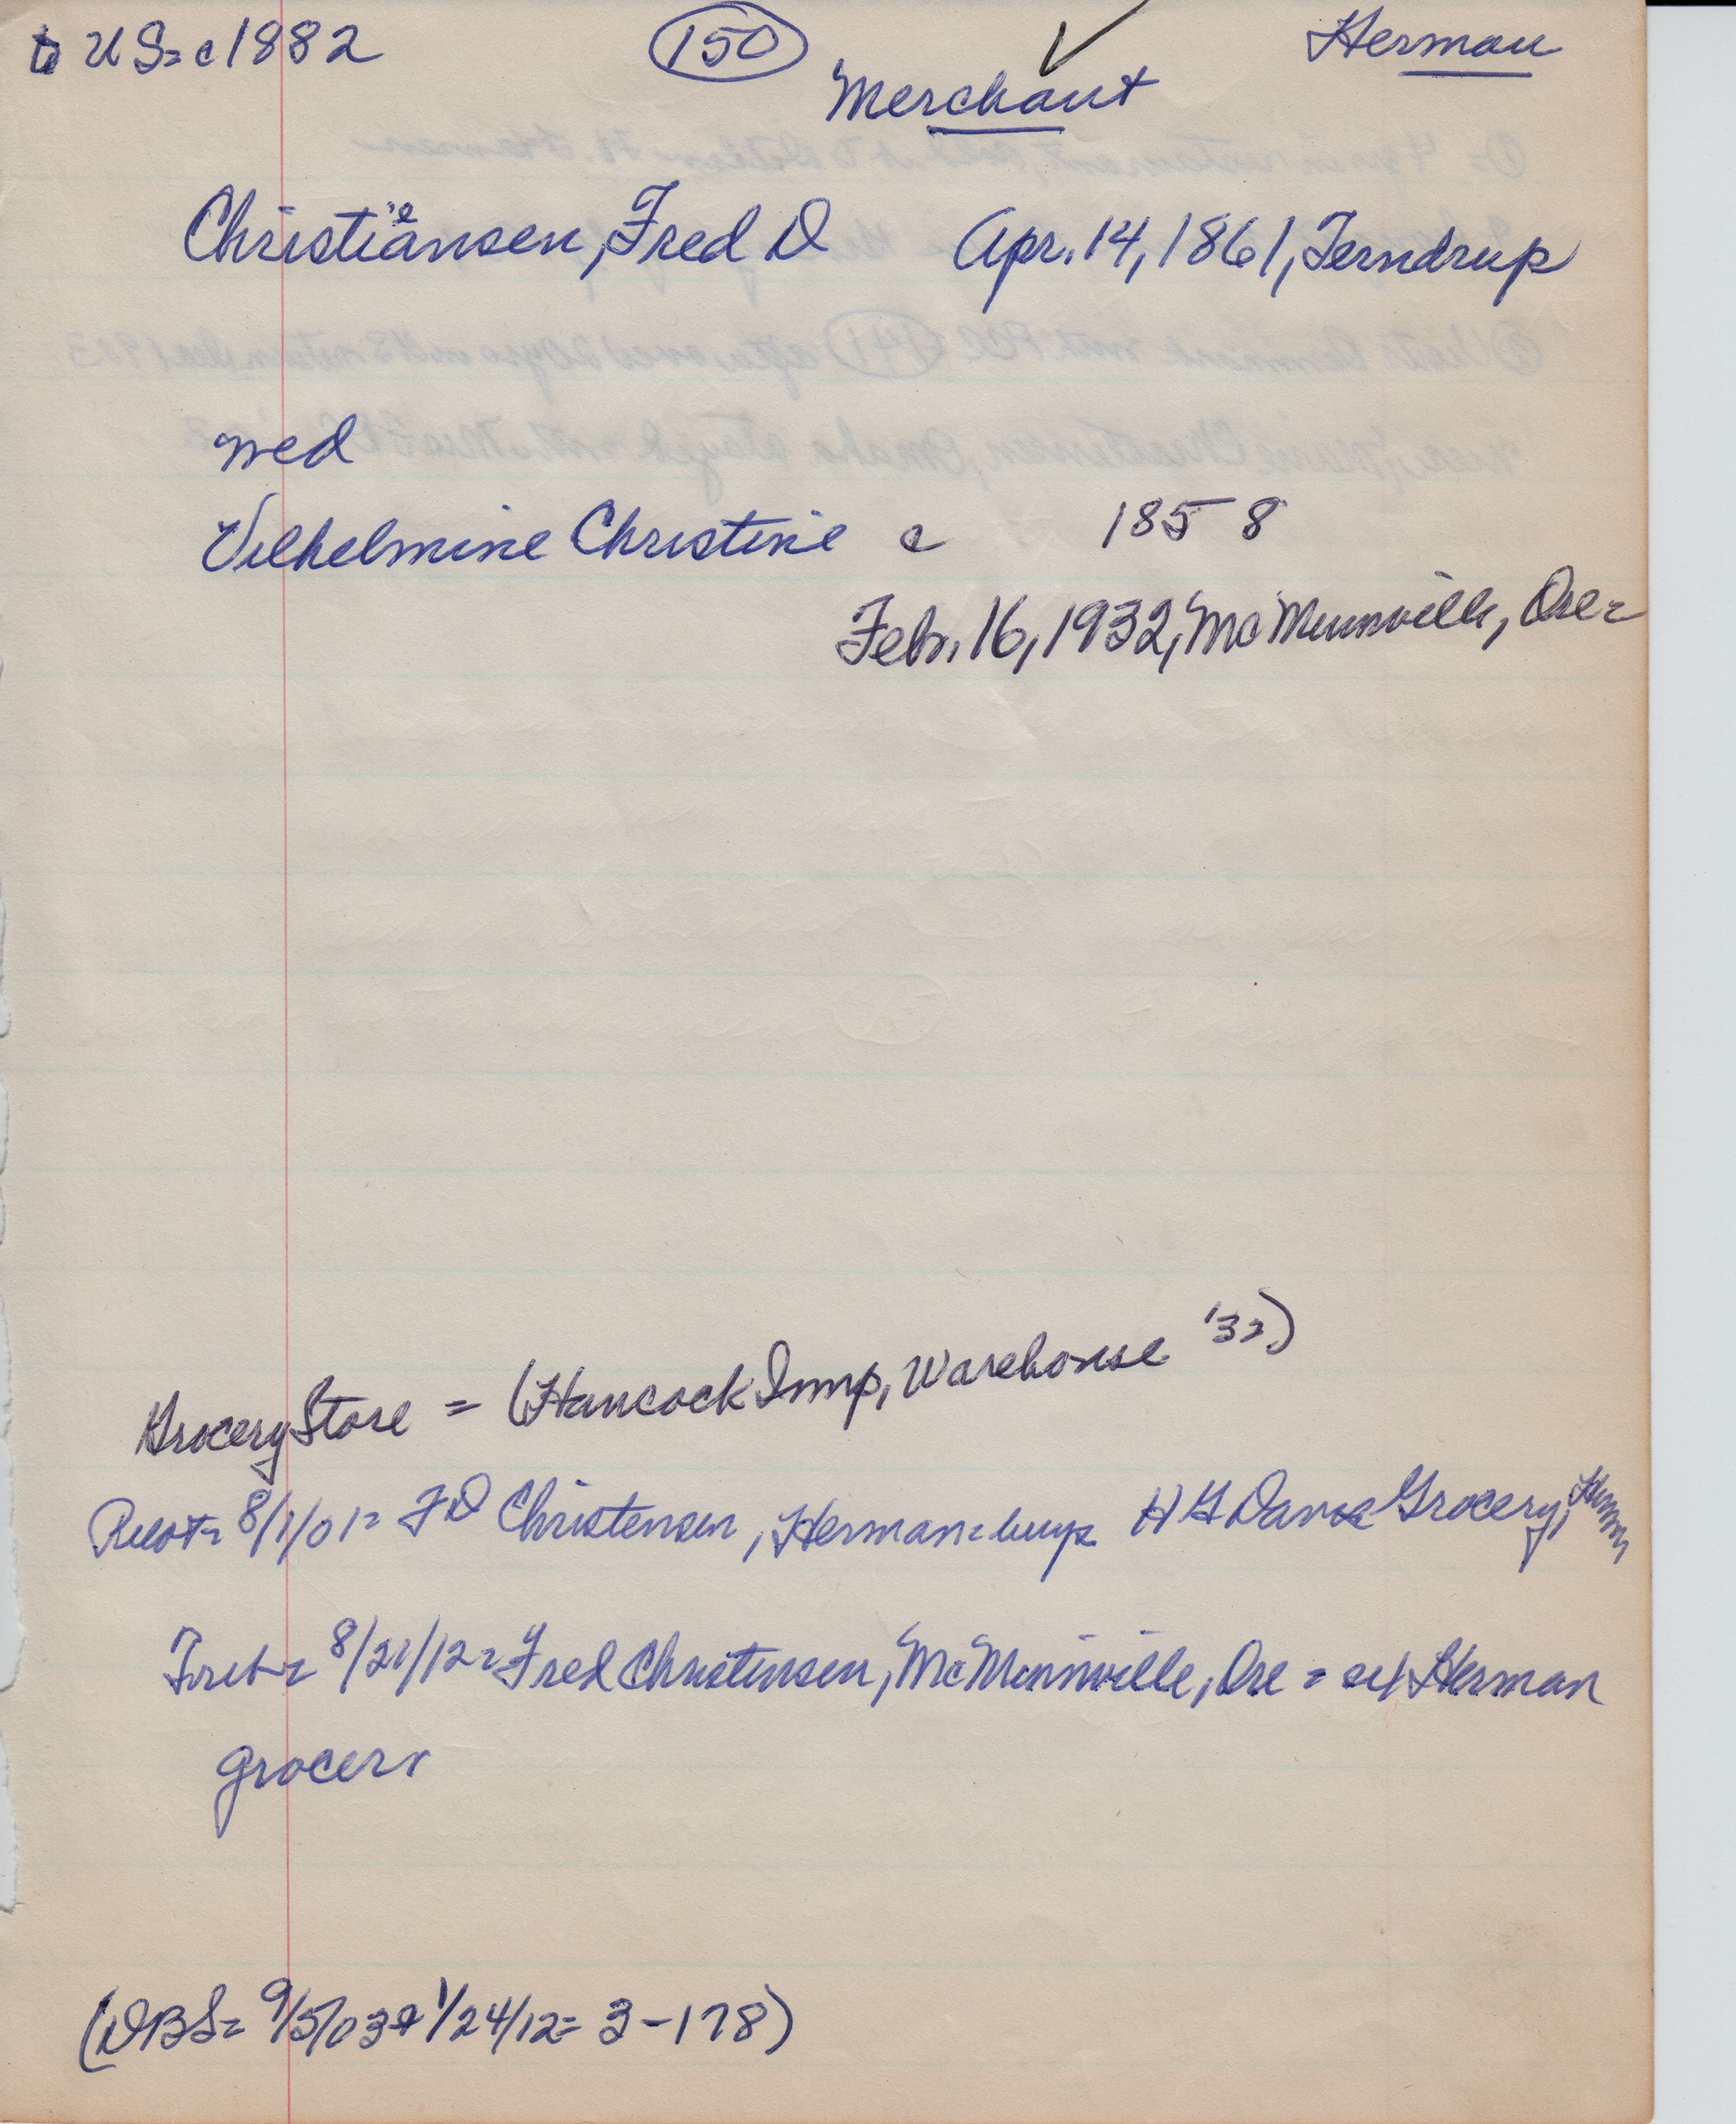 to US= c1882 (150) Herman
Merchant
Christiansen, Fred D Apr. 14, 1861, Terndrup
e
med
Vilhelmine Christine c 1858
Febr. 16, 1932, McMinnville, Ore=
Grocery Store = (Hancock Imp, Warehouse '32)
Pilot= 8/1/01= FD Christensen, Herman= buys H G Davis Grocery, Herman
8/21/12= Fred Christensen, McMinnville, Ore = ex Herman
grocer
(DBS= 9/5/03 & 1/24/12= 3-178)